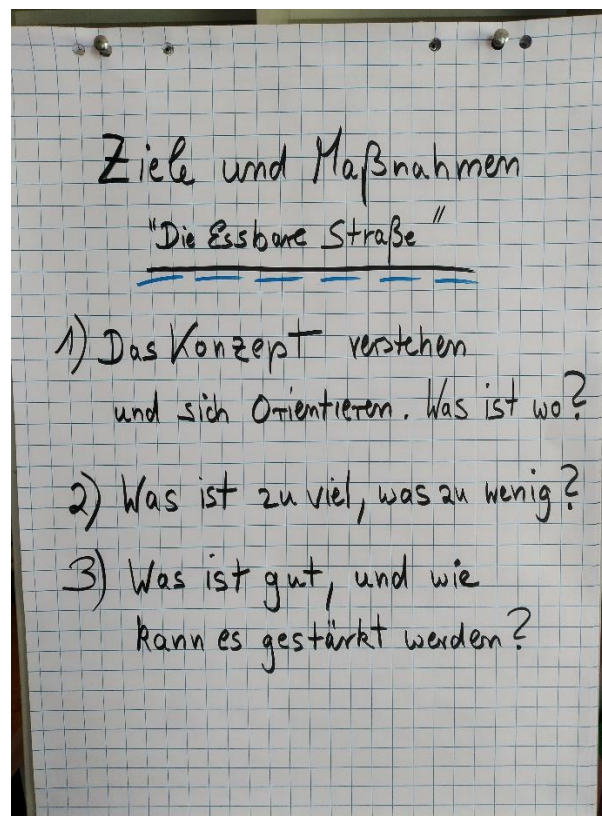 Ziele und Maßnahmen
"Die Essbare Straße"
1) Das Konzept verstehen
und sich Orientieren. Was ist wo?
2) Was ist zu viel, was zu wenig?
3) Was ist gut, und wie
kann es gestärkt werden?